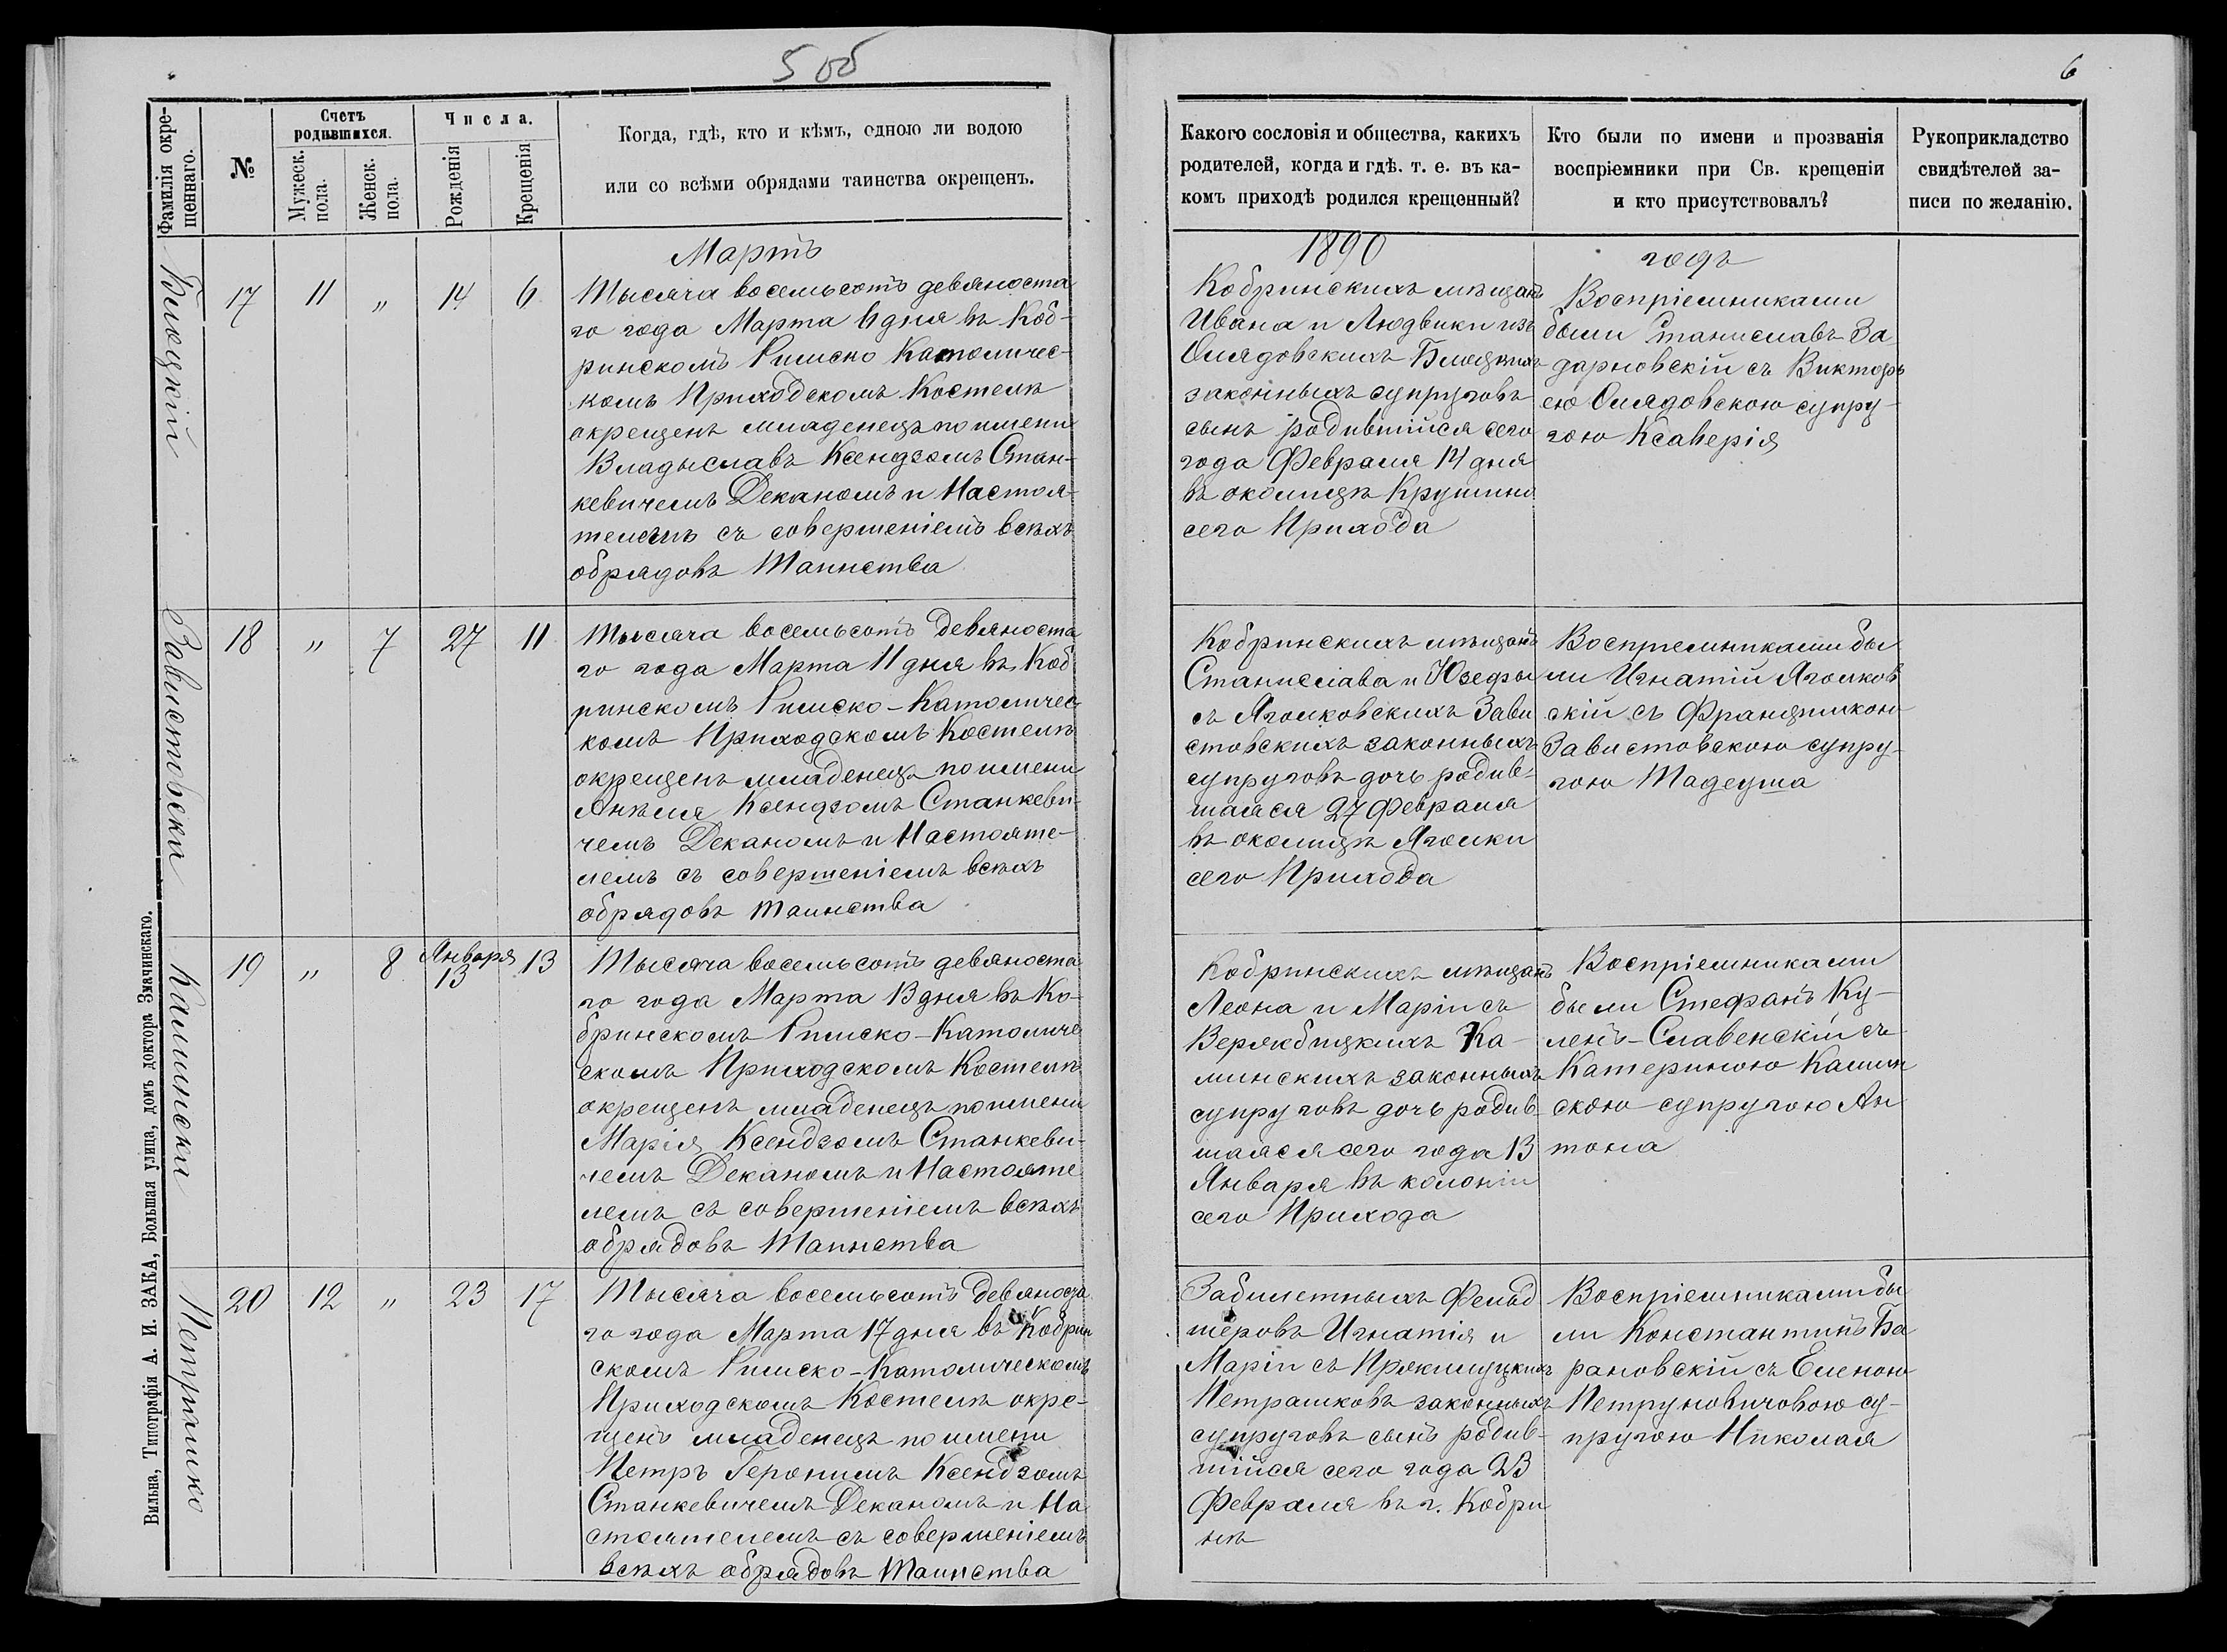 5 об
6
Фамилія окре-
щеннаго.
№
Счетъ
родившихся.
Мужеск.
пола.
Женск.
пола.
Числа.
Рожденія
Крещенія
Когда, гдѣ, кто и кѣмъ, одною ли водою
или со всѣми обрядами таинства окрещенъ.
Какого сословія и общества, какихъ
родителей, когда и гдѣ. т. е. въ ка-
комъ приходѣ родился крещенный?
Кто были по имени и прозванія
воспріемники при Св. крещеніи
и кто присутствовалъ?
Рукоприкладство
свидѣтелей за-
писи по желанію.
Мартъ
1890
годъ
Блоцкій
17
11
"
14
6
Тысяча восемьсотъ девяноста
го года Марта 6 дня въ Коб-
ринскомъ Римско Католичес-
комъ Приходскомъ Костелѣ
окрещенъ младенецъ по имени
Владыславъ Ксендзомъ Стан-
кевичемъ Деканомъ и Настоя-
телемъ съ совершеніемъ всѣхъ
обрядовъ Таинства
Кобринскихъ мѣщанъ
Ивана и Людвики изъ
Олядовскихъ Блоцкихъ
законныхъ супруговъ
сынъ родившійся сего
года Февраля 14 дня
въ околицѣ Крушино
сего Прихода
Воспріемниками
были Станиславъ За
дарновскій съ Виктор
ею Олядовскою супру-
гою Ксаверія
Завистовски
18
"
7
27
11
Тысяча восемьсотъ девяноста
го года Марта 11 дня въ Коб
ринскомъ Римско-Католичес
комъ Приходскомъ Костелѣ
окрещенъ младенецъ по имени
Анѣля Ксендзомъ Станкеви-
чемъ Деканомъ и Настояте-
лемъ съ совершеніемъ всѣхъ
обрядовъ таинства
Кобринскихъ мѣщанъ
Станислава и Юзефы
съ Ягомковскихъ Зави
стовскихъ законныхъ
супруговъ дочь родив-
шаяся 27 Февраля
въ околицѣ Ягомки
сего Прихода
Воспріемниками бы
ли Игнатій Ягомков
скій съ Францишкою
Завистовскою супру-
гою Тадеуша
Калински
19
"
8
Января
13
13
Тысяча восемьсотъ девяноста
го года Марта 13 дня въ Ко-
бринскомъ Римско-Католиче
скомъ Приходскомъ Костелѣ
окрещенъ младенецъ по имени
Марія Ксендзомъ Станкеви-
чемъ Деканомъ и Настояте
лемъ съ совершеніемъ всѣхъ
обрядовъ Таинства
Кобринскихъ мѣщанъ
Леона и Маріи съ
Ка-
линскихъ законныхъ
супруговъ дочь родив-
шаяся сего года 13
Января въ колоніи
сего Прихода
Воспріемниками
были Стефанъ Ку-
лень-Славенскій съ
Катериною Калин
скою супругою Ан
тона
Петрашко
20
12
"
23
17
Тысяча восемьсотъ девяноста
го года Марта 17 дня въ Кобрин
скомъ Римско-Католическомъ
Приходскомъ Костелѣ окре-
щенъ младенецъ по имени
Петръ Геронимъ Ксендзомъ
Станкевичемъ Деканомъ и На
стоятелемъ съ совершеніемъ
всѣхъ обрядовъ Таинства
Забилетныхъ Фельд
шеровъ Игнатія и
Маріи съ
Петрашковъ законныхъ
супруговъ сынъ родив-
шійся сего года 23
Февраля въ г. Кобри
нѣ
Воспріемниками бы
ли Константинъ Ба
рановскій съ Еленою
Петруновичовою су-
пругою Николая
Вильна, Типографія А. И. ЗАКА, Большая улица, домъ доктора Змачинскаго.